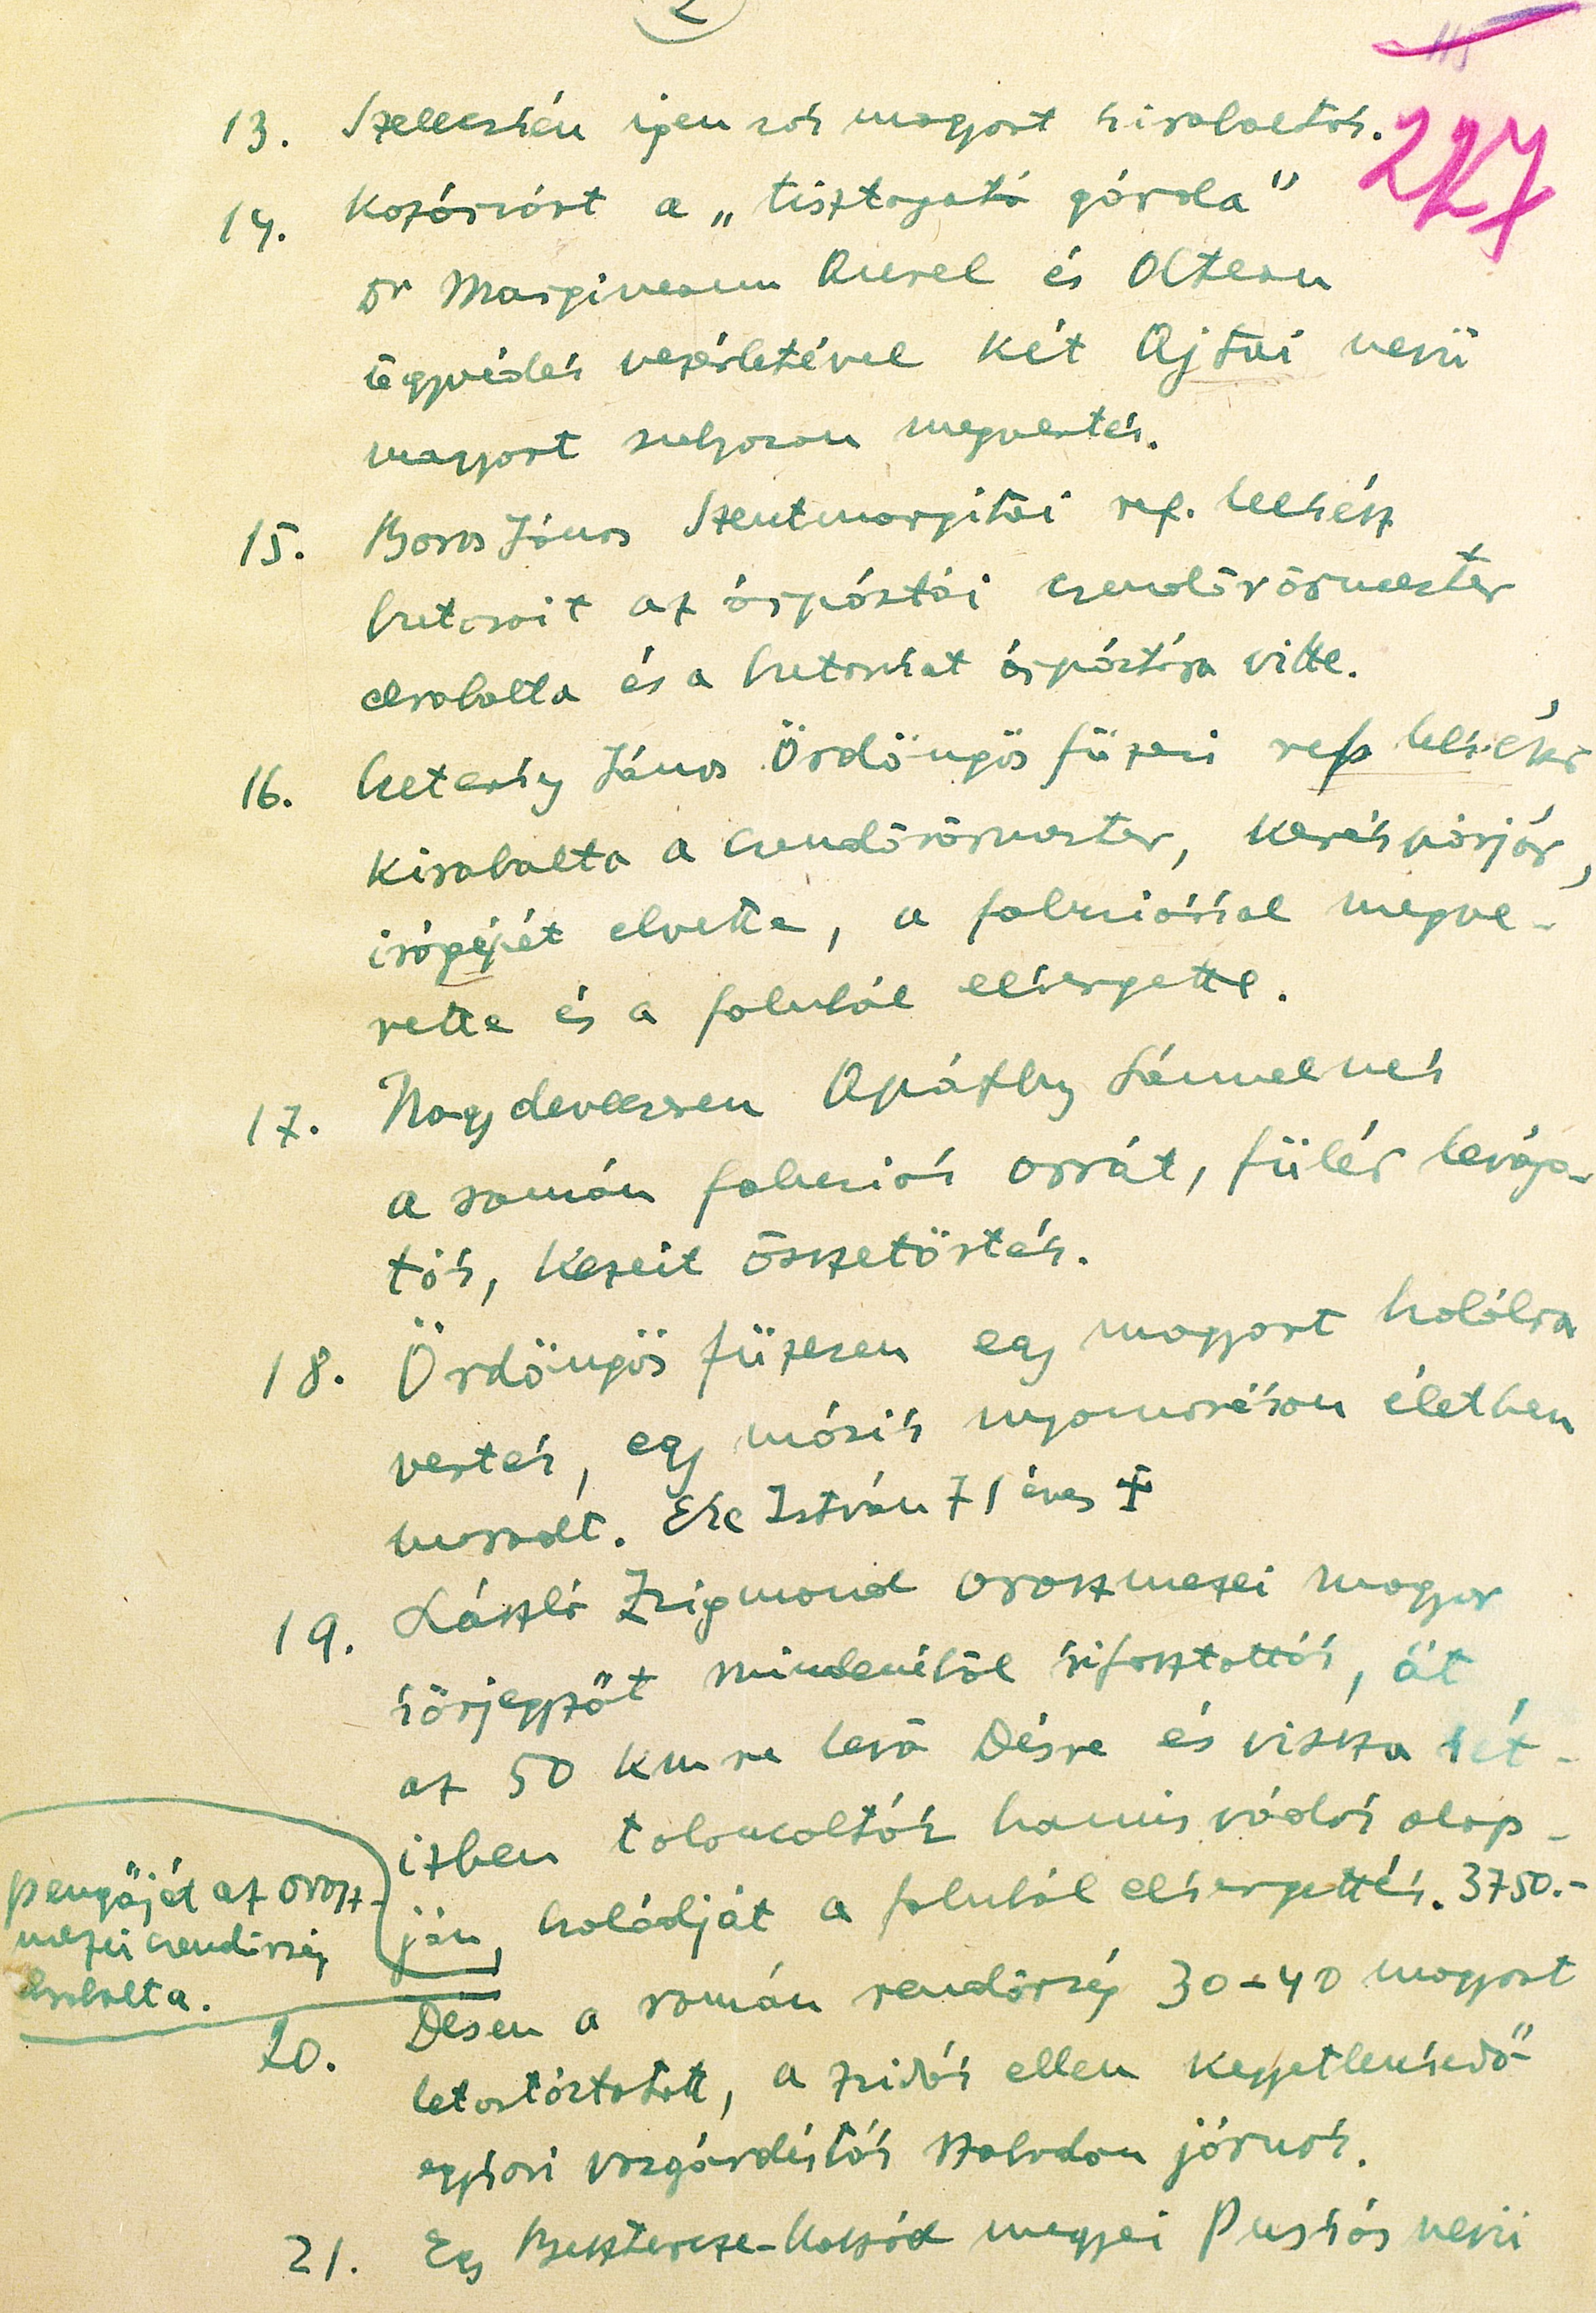 2
227
13. Szelecskén igen sok magyart kiraboltak.
14. Kozárvárt a „tisztogató gárda"
Dr Margineanu Aurel és Olteanu
ügyvédek vezérletével két Ajtai nevü
magyart sulyosan megvertek.
15. Boros János Szentmargitai ref. lelkész
butorait az őrpóstai csendőrőrmester
elrabolta és a butorokat őrpóstára vitte.
16. Keteshy János Ördöngös füzesi ref lelkészt
kirabolta a csendőrőrmester, kerékpárját,
irógépjét elvette, a falusiakkal megve-
rette és a faluból elkergette.
17. Nagydevecseren Apáthy Sámuelnek
a román falusiak orrát, fülét levág-
ták, kezeit összetörték.
18. Ördöngös füzesen egy magyart halálra
vertek, egy másik nyomorékan életben
maradt. Eke István 71 éves †
19. László Zsigmond oroszmezei magyar
körjegyzőt mindenéből kifosztották, őt
az 50 km re levő Désre és vissza két-
izben toloncolták hamis vádak alap-
ján, családját a faluból elkergették. 3750.-
pengőjét az orosz-
mezei csendőrség
elrabolta.
20. Désen a román rendőrség 30-40 magyart
letartóztatott, a zsidók ellen kegyetlenkedő
egykori vasgárdisták szabadon járnak.
21. Egy Besztercze-Naszód megyei Puskás nevü